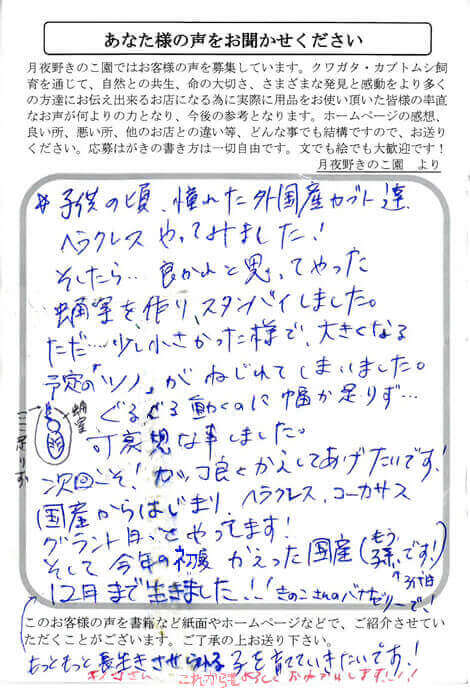 あなた様の声をお聞かせください
月夜野きのこ園ではお客様の声を募集しています。クワガタ・カブトムシ飼
育を通じて、自然との共生、命の大切さ、さまざまな発見と感動をより多く
の方達にお伝え出来るお店になる為に実際に用品をお使い頂いた皆様の率直
なお声が何よりの力となり、今後の参考となります。ホームページの感想、
良い所、悪い所、他のお店との違い等、どんな事でも結構ですので、お送り
ください。応募はがきの書き方は一切自由です。文でも絵でも大歓迎です!
月夜野きのこ園 より
子供の頃、憧れた外国産カブト達
ヘラクレスやってみました!
そしたら… 良かれと思ってやった
蛹室を作り、スタンバイしました。
ただ…少し小さかった様で、大きくなる
予定の「ツノ」がねじれてしまいました。
ぐるぐる動くのに幅が足りず…
可哀想な事しました。
蛹室
ここ足りず
次回こそ!カッコ良くかえしてあげたいです!
国産からはじまり、ヘラクレス、コーカサス
グラント白いとやってます!
そして今年の初夏かえった国産(もう子孫です!)
12月まで生きました!!きのこさんのバナナゼリーで!
このお客様の声を書籍など紙面やホームページなどで、ご紹介させていた
だくことがございます。ご了承の上お送り下さい。
もっともっと長生きさせられる子を育てていきたいです!
これからもよろしくおねがいします!!!